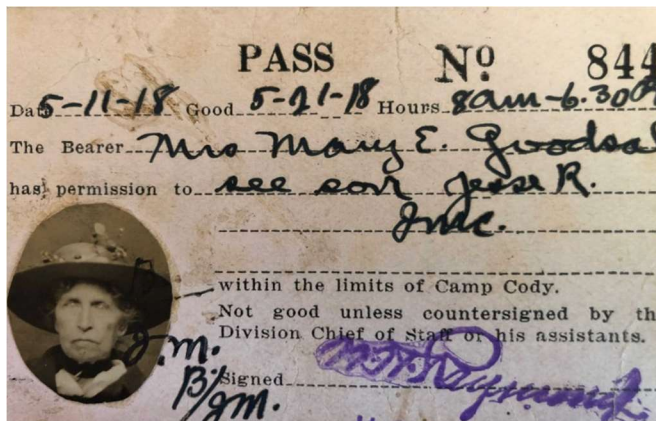 PASS No 844
Date 5-11-18 Good 5-21-18 Hours 8am-6.30P
The Bearer Mrs Mary E. Goodsal
has permission to see son Jesse R.
JMC.
within the limits of Camp Cody.
Not good unless countersigned by th
Division Chief of Staff or his assistants.
J.M.
Signed
B/JM.